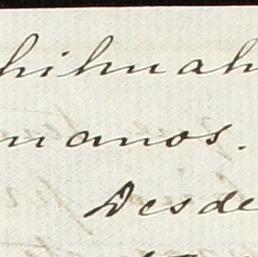 hihuah
manos.
Desde